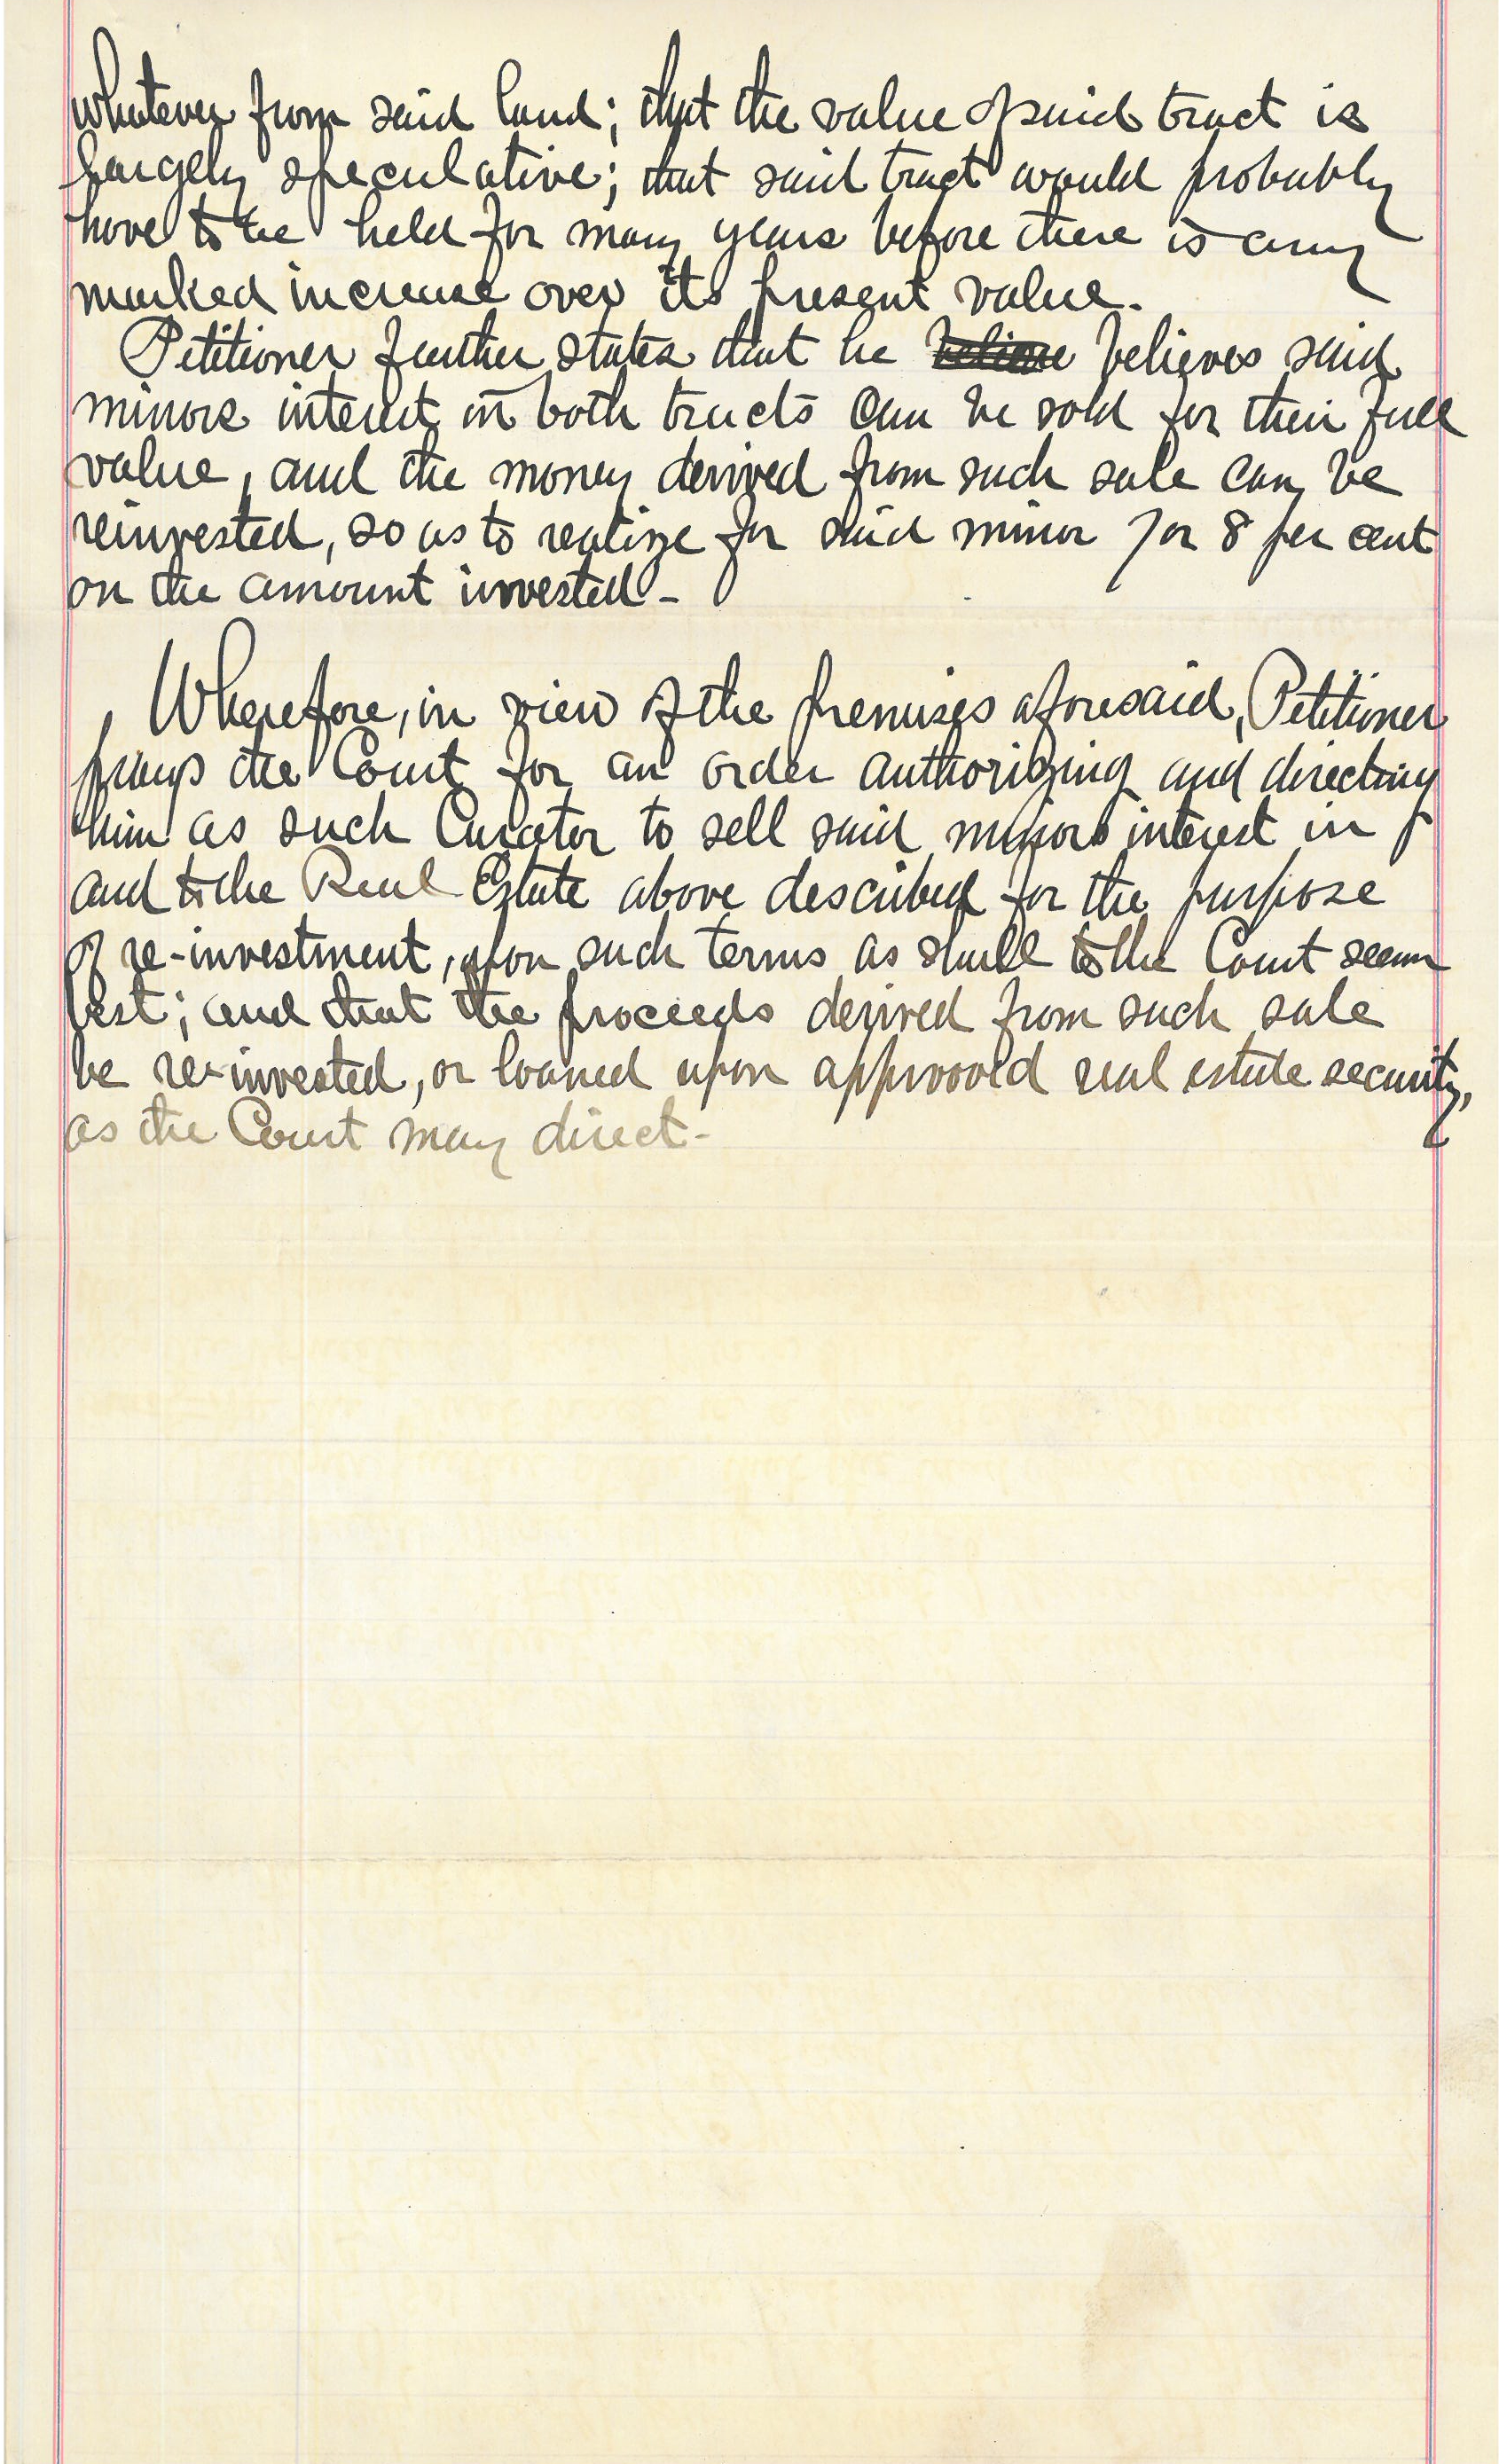 whatever from said land; that the value of said tract is
largely speculative; that said tract would probably
have to be held for many years before there is any
marked increase over its present value.
Petitioner further states that he believe believes said
minors interest in both tracts can be sold for their full
value, and the money derived from such sale can be
reinvested, so as to realize for said minor 7 or 8 per cent
on the amount invested -
Wherefore, in view of the premises aforesaid, Petitioner
prays the Court for an order authorizing and directing
him as such Curator to sell said minors interest in
and to the Real Estate above described for the purpose
of re-investment, upon such terms as shall to the Court seem
best; and that the proceeds derived from such sale
be re-invested, or loaned upon approved real estate security,
as the Court may direct -